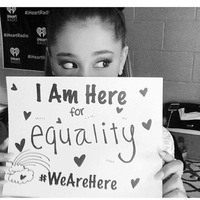 iHeart
RADIO
#iHeartRadio
iHeart
RADIO
#iHeartRadio
I Am Here
for
equality
#WeAreHere